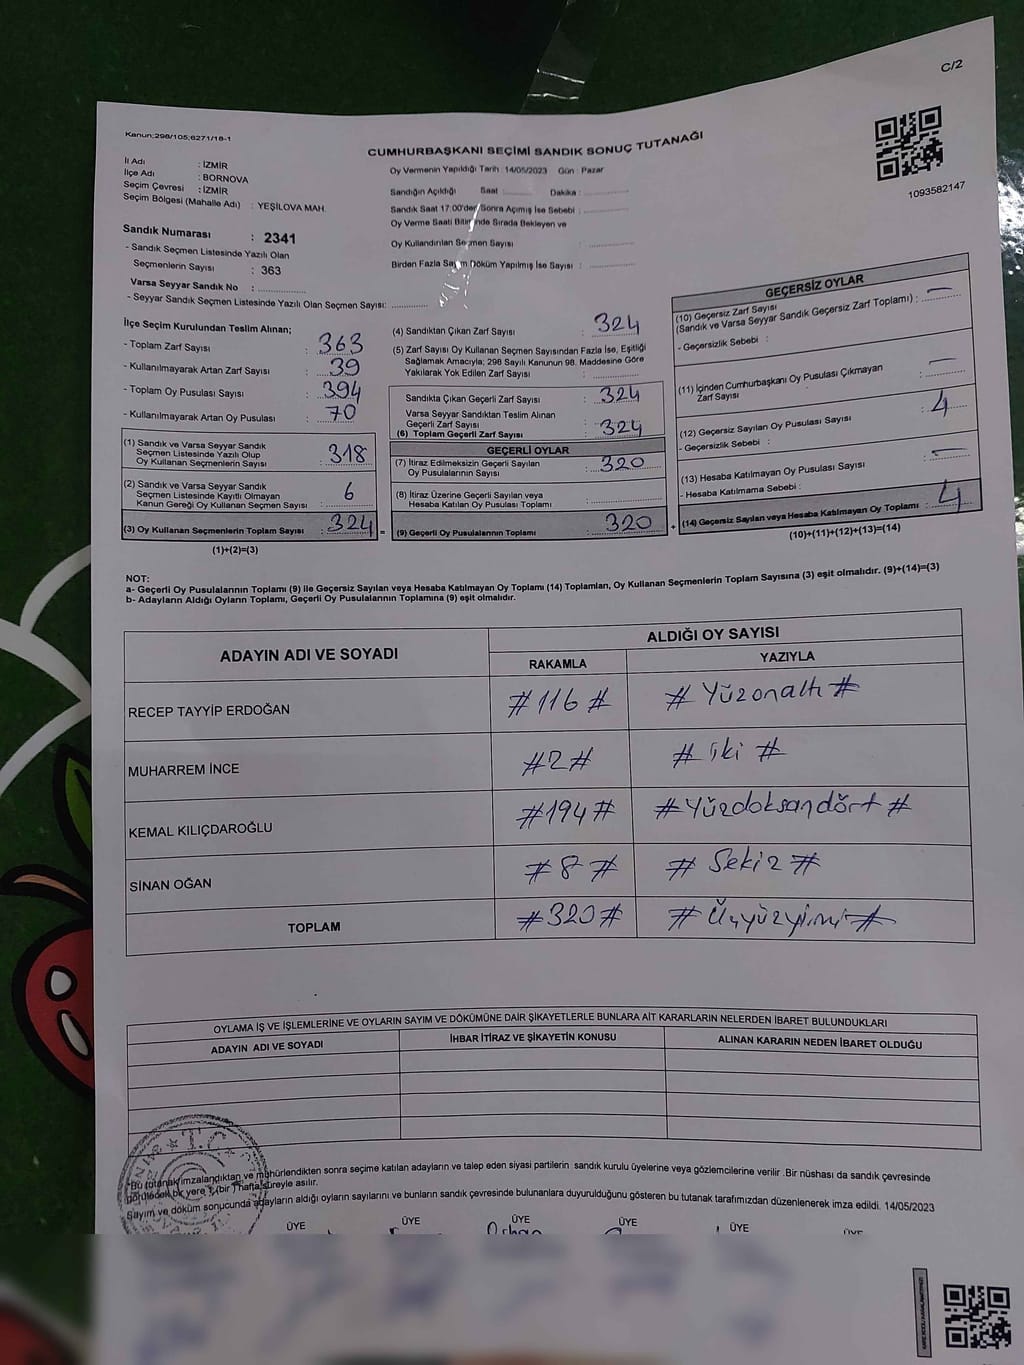 C/2
Kanun;298/105;6271/18-1
CUMHURBAŞKANI SEÇİMİ SANDIK SONUÇ TUTANAĞI
1093582147
İl Adı : İZMİR
İlçe Adı : BORNOVA
Seçim Çevresi : İZMİR
Seçim Bölgesi (Mahalle Adı) : YEŞİLOVA MAH.
Oy Vermenin Yapıldığı Tarih :14/05/2023 Gün : Pazar
Sandığın Açıldığı Saat : Dakika :
Sandık Saat 17:00'den Sonra Açımış İse Sebebi :
Oy Verme Saati Bitiminde Sırada Bekleyen ve
Oy Kullandırılan Seçmen Sayısı :
Birden Fazla Sayım Döküm Yapılmış İse Sayısı :
Sandık Numarası : 2341
- Sandık Seçmen Listesinde Yazılı Olan
Seçmenlerin Sayısı : 363
Varsa Seyyar Sandık No :
- Seyyar Sandık Seçmen Listesinde Yazılı Olan Seçmen Sayısı:
İlçe Seçim Kurulundan Teslim Alınan;
- Toplam Zarf Sayısı : 363
- Kullanılmayarak Artan Zarf Sayısı : 39
- Toplam Oy Pusulası Sayısı : 394
- Kullanılmayarak Artan Oy Pusulası : 70
(1) Sandık ve Varsa Seyyar Sandık
Seçmen Listesinde Yazılı Olup
Oy Kullanan Seçmenlerin Sayısı : 318
(2) Sandık ve Varsa Seyyar Sandık
Seçmen Listesinde Kayıtlı Olmayan
Kanun Gereği Oy Kullanan Seçmen Sayısı : 6
(3) Oy Kullanan Seçmenlerin Toplam Sayısı : 324
(1)+(2)=(3)
(4) Sandıktan Çıkan Zarf Sayısı : 324
(5) Zarf Sayısı Oy Kullanan Seçmen Sayısından Fazla İse, Eşitliği
Sağlamak Amacıyla; 298 Sayılı Kanunun 98. Maddesine Göre
Yakılarak Yok Edilen Zarf Sayısı :
Sandıkta Çıkan Geçerli Zarf Sayısı : 324
Varsa Seyyar Sandıktan Teslim Alınan
Geçerli Zarf Sayısı :
(6) Toplam Geçerli Zarf Sayısı : 324
GEÇERLİ OYLAR
(7) İtiraz Edilmeksizin Geçerli Sayılan
Oy Pusulalarının Sayısı : 320
(8) İtiraz Üzerine Geçerli Sayılan veya
Hesaba Katılan Oy Pusulası Toplamı :
= (9) Geçerli Oy Pusulalarının Toplamı : 320
GEÇERSİZ OYLAR
(10) Geçersiz Zarf Sayısı
(Sandık ve Varsa Seyyar Sandık Geçersiz Zarf Toplamı) : —
- Geçersizlik Sebebi :
(11) İçinden Cumhurbaşkanı Oy Pusulası Çıkmayan
Zarf Sayısı : —
(12) Geçersiz Sayılan Oy Pusulası Sayısı : 4
- Geçersizlik Sebebi :
(13) Hesaba Katılmayan Oy Pusulası Sayısı : —
- Hesaba Katılmama Sebebi :
+ (14) Geçersiz Sayılan veya Hesaba Katılmayan Oy Toplamı : 4
(10)+(11)+(12)+(13)=(14)
NOT:
a- Geçerli Oy Pusulalarının Toplamı (9) ile Geçersiz Sayılan veya Hesaba Katılmayan Oy Toplamı (14) Toplamları, Oy Kullanan Seçmenlerin Toplam Sayısına (3) eşit olmalıdır. (9)+(14)=(3)
b- Adayların Aldığı Oyların Toplamı, Geçerli Oy Pusulalarının Toplamına (9) eşit olmalıdır.
ADAYIN ADI VE SOYADI ALDIĞI OY SAYISI
RAKAMLA YAZIYLA
RECEP TAYYİP ERDOĞAN #116# #Yüzonaltı#
MUHARREM İNCE #2# #iki#
KEMAL KILIÇDAROĞLU #194# #Yüzdoksandört#
SİNAN OĞAN #8# #Sekiz#
TOPLAM #320# #Üçyüzyirmi#
OYLAMA İŞ VE İŞLEMLERİNE VE OYLARIN SAYIM VE DÖKÜMÜNE DAİR ŞİKAYETLERLE BUNLARA AİT KARARLARIN NELERDEN İBARET BULUNDUKLARI
ADAYIN ADI VE SOYADI İHBAR İTİRAZ VE ŞİKAYETİN KONUSU ALINAN KARARIN NEDEN İBARET OLDUĞU
T.C.
"Bu tutanak imzalandıktan ve mühürlendikten sonra seçime katılan adayların ve talep eden siyasi partilerin sandık kurulu üyelerine veya gözlemcilerine verilir .Bir nüshası da sandık çevresinde
görülecek bir yere 1 (bir ) hafta süreyle asılır.
Sayım ve döküm sonucunda adayların aldığı oyların sayılarını ve bunların sandık çevresinde bulunanlara duyurulduğunu gösteren bu tutanak tarafımızdan düzenlenerek imza edildi. 14/05/2023
ÜYE ÜYE ÜYE ÜYE ÜYE ÜYE
Orhan